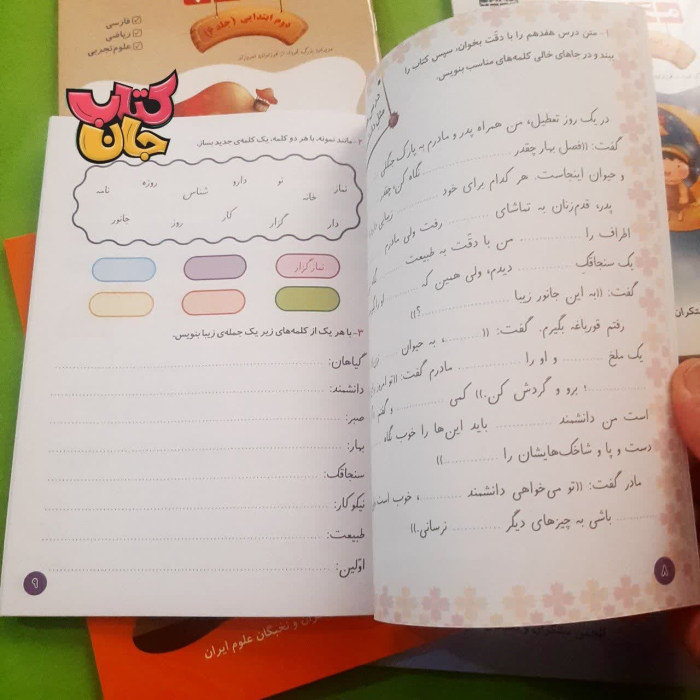 دوم ابتدایی (جلد ۶)
فارسی
ریاضی
علوم تجربی
کتاب
جان
۱- متن درس هفدهم را با دقّت بخوان، سپس کتاب را
ببند و در جاهای خالی کلمه‌های مناسب بنویس.
در یک روز تعطیل، من همراه پدر و مادرم به پارک جنگلی
گفت: ((فصل بهار چقدر .......... نگاه کن! چقدر
و حیوان اینجاست. هر کدام برای خود .......... زیبایی
پدر، قدم‌زنان به تماشای .......... رفت ولی مادرم
اطراف را .......... من با دقّت به طبیعت
یک سنجاقکِ .......... دیدم، ولی همین که
گفت: ((به این جانور زیبا ..........؟))
رفتم قورباغه بگیرم. گفت: ((..........، به حیوان
یک ملخ .......... و او را .......... مادرم گفت: ((تو امروز
..........؛ برو و گردش کن.)) کمی .......... و گفتم
است من دانشمند .......... باید این‌ها را خوب نگاه
دست و پا و شاخک‌هایشان را ..........))
مادر گفت: ((تو می‌خواهی دانشمند ..........، خوب است
.......... باشی به چیزهای دیگر .......... نرسانی.))
۸
۲- مانند نمونه، با هر دو کلمه، یک کلمه‌ی جدید بساز.
نماز نو دارو روزه نامه
خانه شناس
دار گزار کار روز جانور
نماز گزار
۳- با هر یک از کلمه‌های زیر یک جمله‌ی زیبا بنویس.
گیاهان:
دانشمند:
صبر:
بهار:
سنجاقک:
نیکوکار:
طبیعت:
اوّلین:
۹
نخبگان علوم ایران